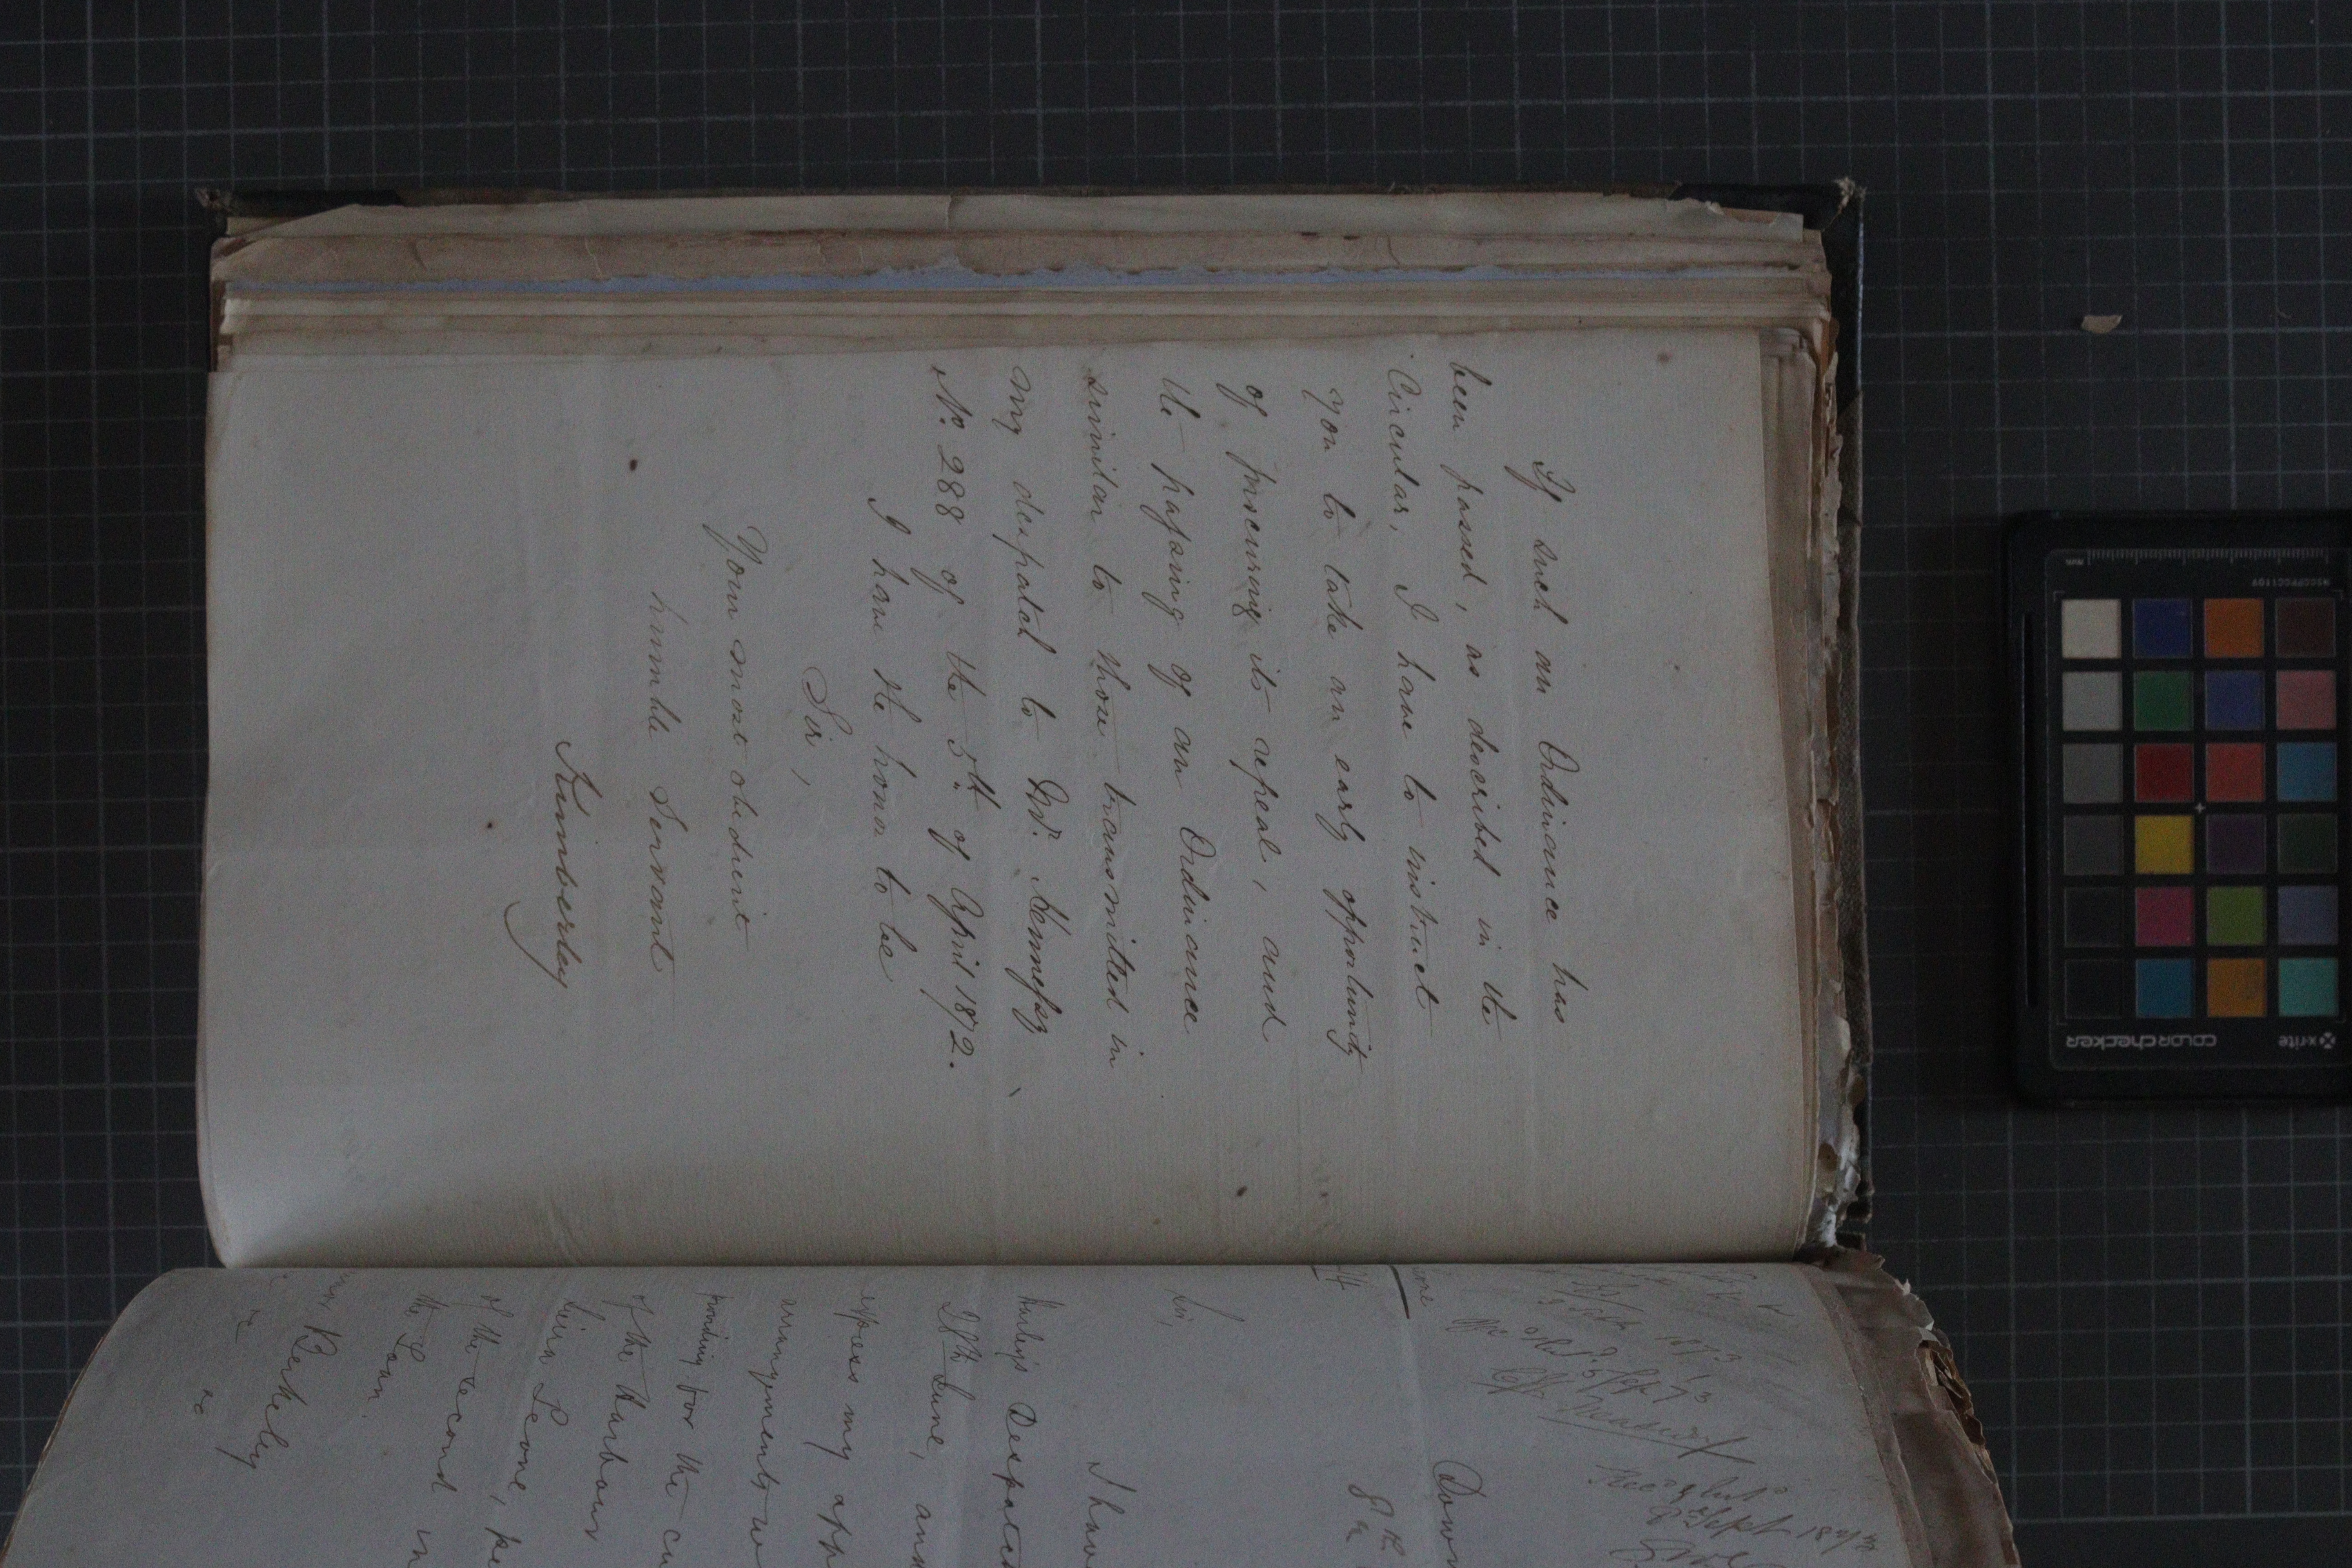 If such an Ordinance has
been passed, as described in the
Circular, I have to instruct
you to take an early opportunity
of procuring its repeal, and
the passing of an Ordinance
similar to those transmitted in
my despatch to Mr. Kennedy
No. 288 of the 5th. of April 1872.
I have the honor to be
Sir,
Your most obedient
humble Servant
Kimberley
Down
8th
Sir,
I have
Harley's Despatch
June, and
express my app
arrangements w
providing for the cu
of the Harbour
Sierra Leone, pe
of the second in
the Loan.
Berkeley
colorchecker
x-rite